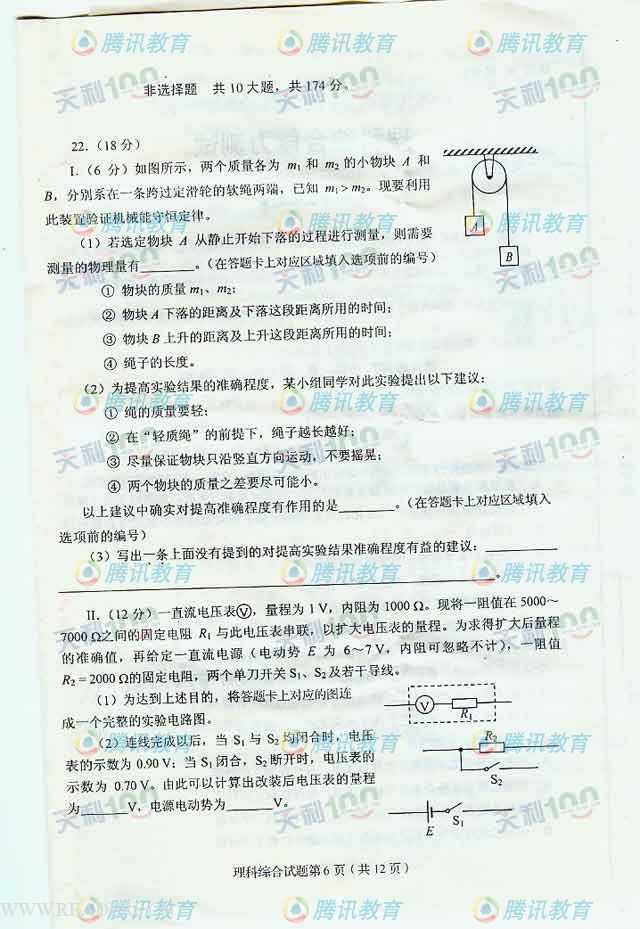 非选择题 共10大题，共174分。
22．（18分）
I．（6 分）如图所示，两个质量各为 m₁ 和 m₂ 的小物块 A 和
B，分别系在一条跨过定滑轮的软绳两端，已知 m₁＞m₂。现要利用
此装置验证机械能守恒定律。
（1）若选定物块 A 从静止开始下落的过程进行测量，则需要
测量的物理量有________。（在答题卡上对应区域填入选项前的编号）
① 物块的质量 m₁、m₂；
② 物块 A 下落的距离及下落这段距离所用的时间；
③ 物块 B 上升的距离及上升这段距离所用的时间；
④ 绳子的长度。
（2）为提高实验结果的准确程度，某小组同学对此实验提出以下建议：
① 绳的质量要轻；
② 在“轻质绳”的前提下，绳子越长越好；
③ 尽量保证物块只沿竖直方向运动，不要摇晃；
④ 两个物块的质量之差要尽可能小。
以上建议中确实对提高准确程度有作用的是________。（在答题卡上对应区域填入
选项前的编号）
（3）写出一条上面没有提到的对提高实验结果准确程度有益的建议：__________
________________________________________。
II．（12 分）一直流电压表Ⓥ，量程为 1 V，内阻为 1000 Ω。现将一阻值在 5000～
7000 Ω之间的固定电阻 R₁ 与此电压表串联，以扩大电压表的量程。为求得扩大后量程
的准确值，再给定一直流电源（电动势 E 为 6～7 V，内阻可忽略不计），一阻值
R₂＝2000 Ω的固定电阻，两个单刀开关 S₁、S₂ 及若干导线。
（1）为达到上述目的，将答题卡上对应的图连
成一个完整的实验电路图。
（2）连线完成以后，当 S₁ 与 S₂ 均闭合时，电压
表的示数为 0.90 V；当 S₁ 闭合，S₂ 断开时，电压表的
示数为 0.70 V。由此可以计算出改装后电压表的量程
为______V，电源电动势为______V。
A
B
V
R₁
R₂
S₂
E
S₁
理科综合试题第 6 页（共 12 页）
腾讯教育
天利100